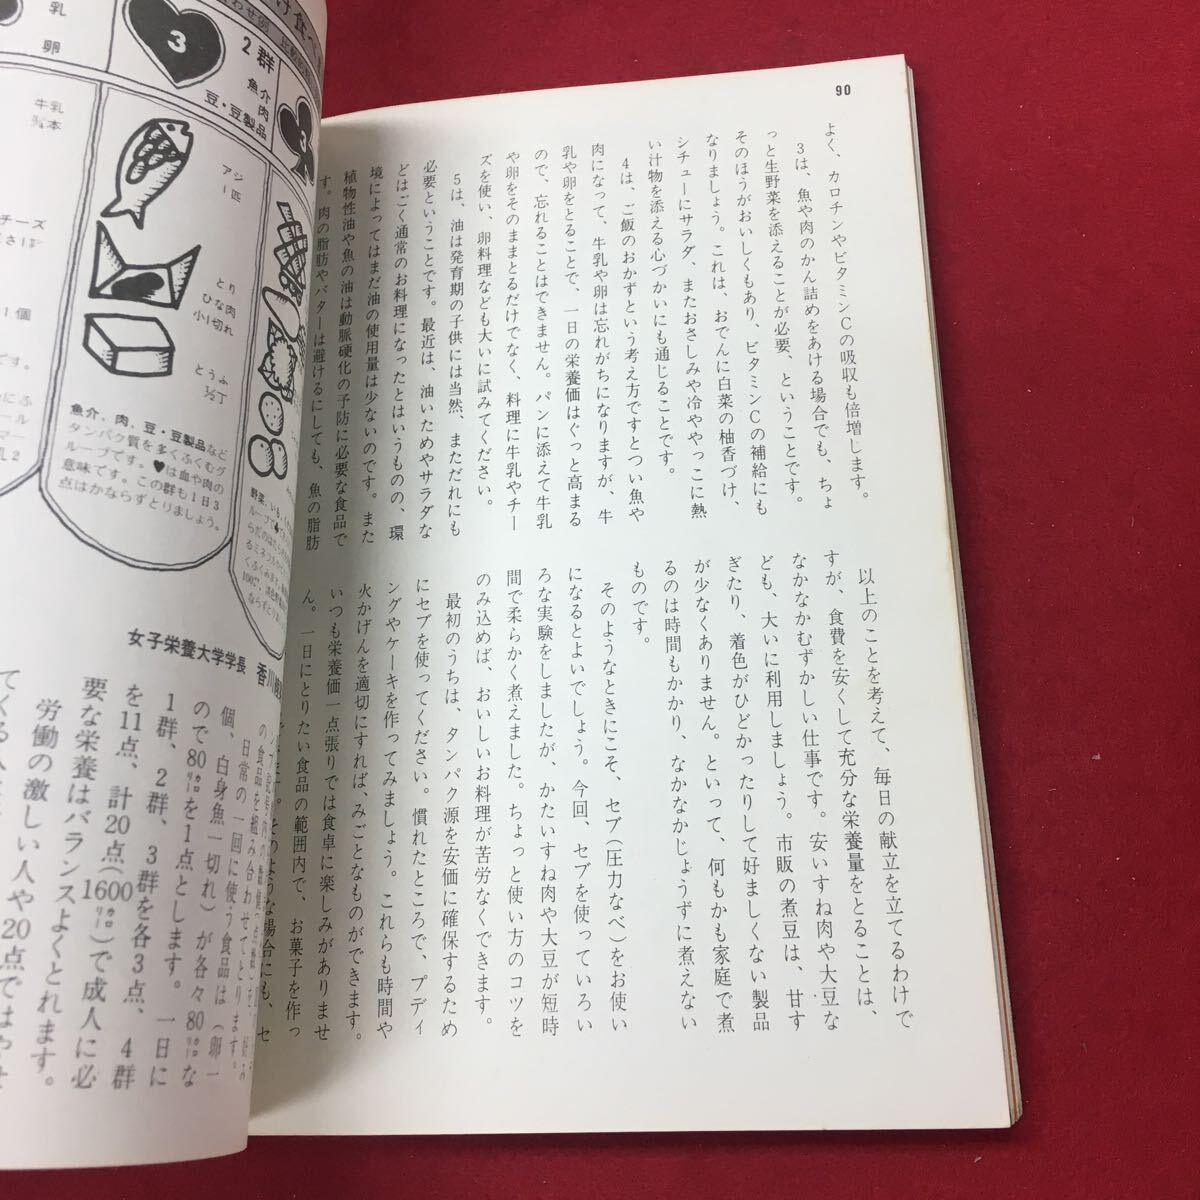 90
よく、カロチンやビタミンCの吸収も倍増します。
3は、魚や肉のかん詰めをあける場合でも、ちょ
っと生野菜を添えることが必要、ということです。
そのほうがおいしくもあり、ビタミンCの補給にも
なりましょう。これは、おでんに白菜の柚香づけ、
シチューにサラダ、またおさしみや冷ややっこに熱
い汁物を添える心づかいにも通じることです。
4は、ご飯のおかずという考え方ですとつい魚や
肉になって、牛乳や卵は忘れがちになりますが、牛
乳や卵をとることで、一日の栄養価はぐっと高まる
ので、忘れることはできません。パンに添えて牛乳
や卵をそのままとるだけでなく、料理に牛乳やチー
ズを使い、卵料理なども大いに試みてください。
5は、油は発育期の子供には当然、まただれにも
必要ということです。最近は、油いためやサラダな
どはごく通常のお料理になったとはいうものの、環
境によってはまだ油の使用量は少ないのです。また
植物性油や魚の油は動脈硬化の予防に必要な食品で
す。肉の脂肪やバターは避けるにしても、魚の脂肪
以上のことを考えて、毎日の献立を立てるわけで
すが、食費を安くして充分な栄養量をとることは、
なかなかむずかしい仕事です。安いすね肉や大豆な
ども、大いに利用しましょう。市販の煮豆は、甘す
ぎたり、着色がひどかったりして好ましくない製品
が少なくありません。といって、何もかも家庭で煮
るのは時間もかかり、なかなかじょうずに煮えない
ものです。
そのようなときにこそ、セブ(圧力なべ)をお使い
になるとよいでしょう。今回、セブを使っていろい
ろな実験をしましたが、かたいすね肉や大豆が短時
間で柔らかく煮えました。ちょっと使い方のコツを
のみ込めば、おいしいお料理が苦労なくできます。
最初のうちは、タンパク源を安価に確保するため
にセブを使ってください。慣れたところで、プディ
ングやケーキを作ってみましょう。これらも時間や
火かげんを適切にすれば、みごとなものができます。
いつも栄養価一点張りでは食卓に楽しみがありませ
ん。一日にとりたい食品の範囲内で、お菓子を作っ
2群
魚介
肉
豆・豆製品
3
3
乳
卵
牛乳
アジ
一匹
とり
ひな肉
小1切れ
とうふ
½丁
チーズ
1個
魚介、肉、豆・豆製品など
タンパク質を多くふくむグ
ループです。♥は血や肉の
意味です。この群も1日3
点はかならずとりましょう。
女子栄養大学学長 香川
の食品を組み合わせてとります。
日常の一回に使う食品は(卵一
個、白身魚一切れ)が各々80カロリーな
ので80カロリーを1点とします。一日に
1群、2群、3群を各3点、4群
を11点、計20点(1600カロリー)で成人に必
要な栄養はバランスよくとれます。
労働の激しい人や20点ではやせ